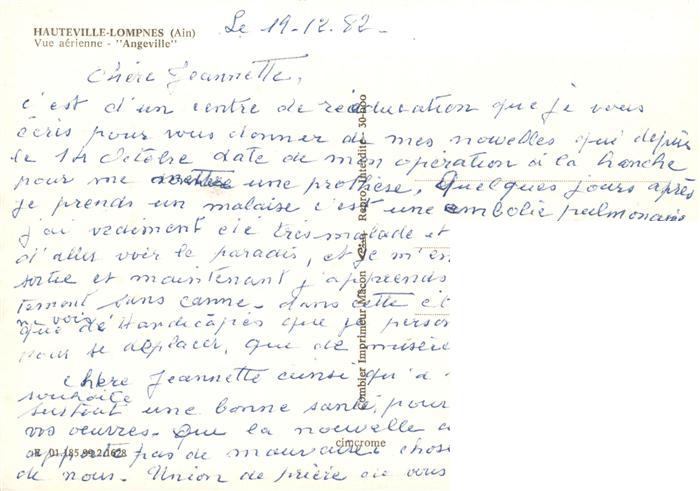 HAUTEVILLE-LOMPNES (Ain)
Vue aérienne - "Angeville"
Le 19-12-82-
Chère Jeannette,
c'est d'un centre de rééducation que je vous
écris pour vous donner de mes nouvelles qui depuis
le 1er Octobre date de mon opération à la hanche
pour me mettre une prothèse, Quelques jours après
je prends un malaise c'est une embolie pulmonaire
j'ai vraiment été très malade et
d'aller voir le paradis, et je m'en
sortie et maintenant j'apprends
tement sans canne - dans cette
je vois
que de Handicapés que je
pour se déplacer, que de misère
Chère Jeannette ainsi qu'à
souhaite
une bonne santé, pour
vos oeuvres. Que la nouvelle a
apporte pas de mauvaises chose
de nous. Union de prière de vous
R. 01.185.99.2.1628
cimcrome
Combier Imprimeur Mâcon Repro. interdite